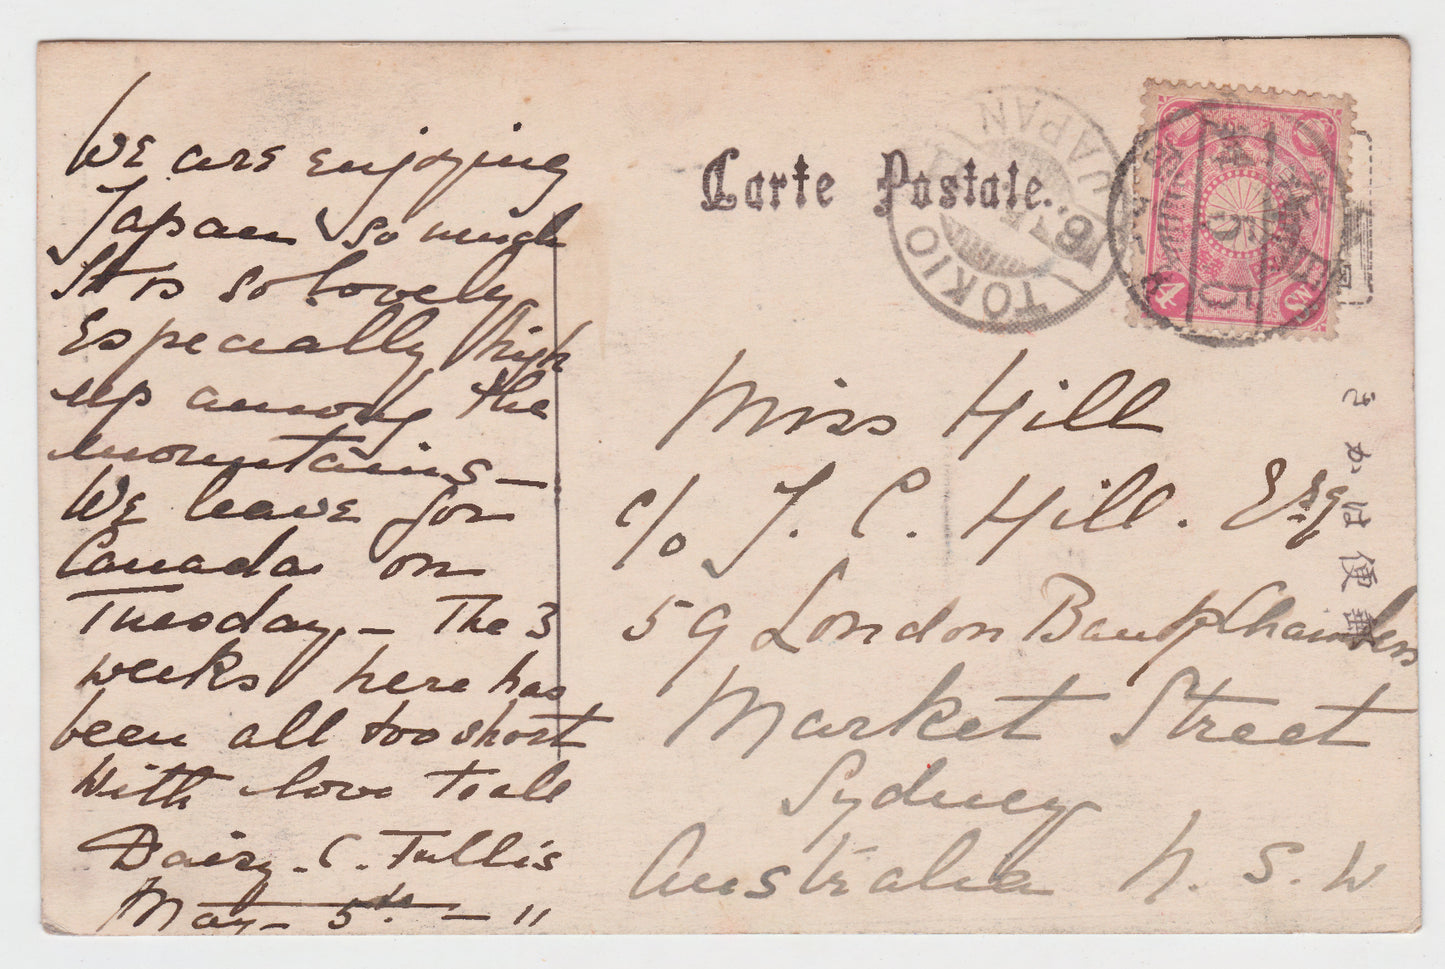 We are enjoying
Japan so much
It is so lovely
Especially high
up among the
mountains –
We leave for
Canada on
Tuesday – The 3
weeks here has
been all too short
With love to all
Daisy. C. Tullis
May 5th – 11
Carte Postale.
TOKIO
JAPAN
4
Miss Hill
c/o J. C. Hill. Esq
59 London Bank Chambers
Market Street
Sydney
Australia N. S. W
きかは便郵